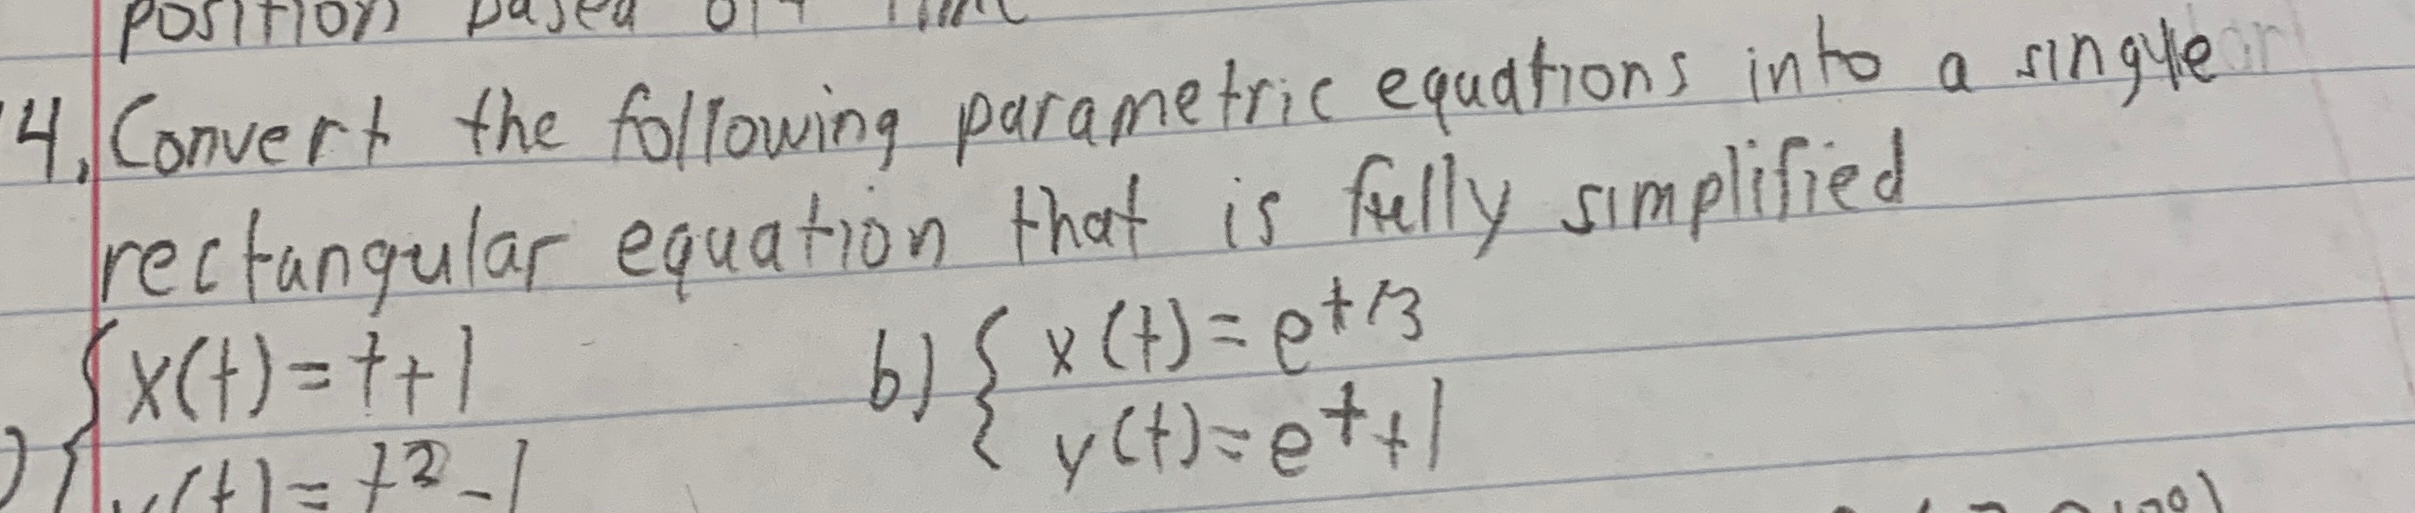 position based off time
14. Convert the following parametric equations into a single
rectangular equation that is fully simplified
{ x(t) = t + 1    b) { x(t) = e^{t/3}
) y(t) = t² - 1    y(t) = e^t + 1